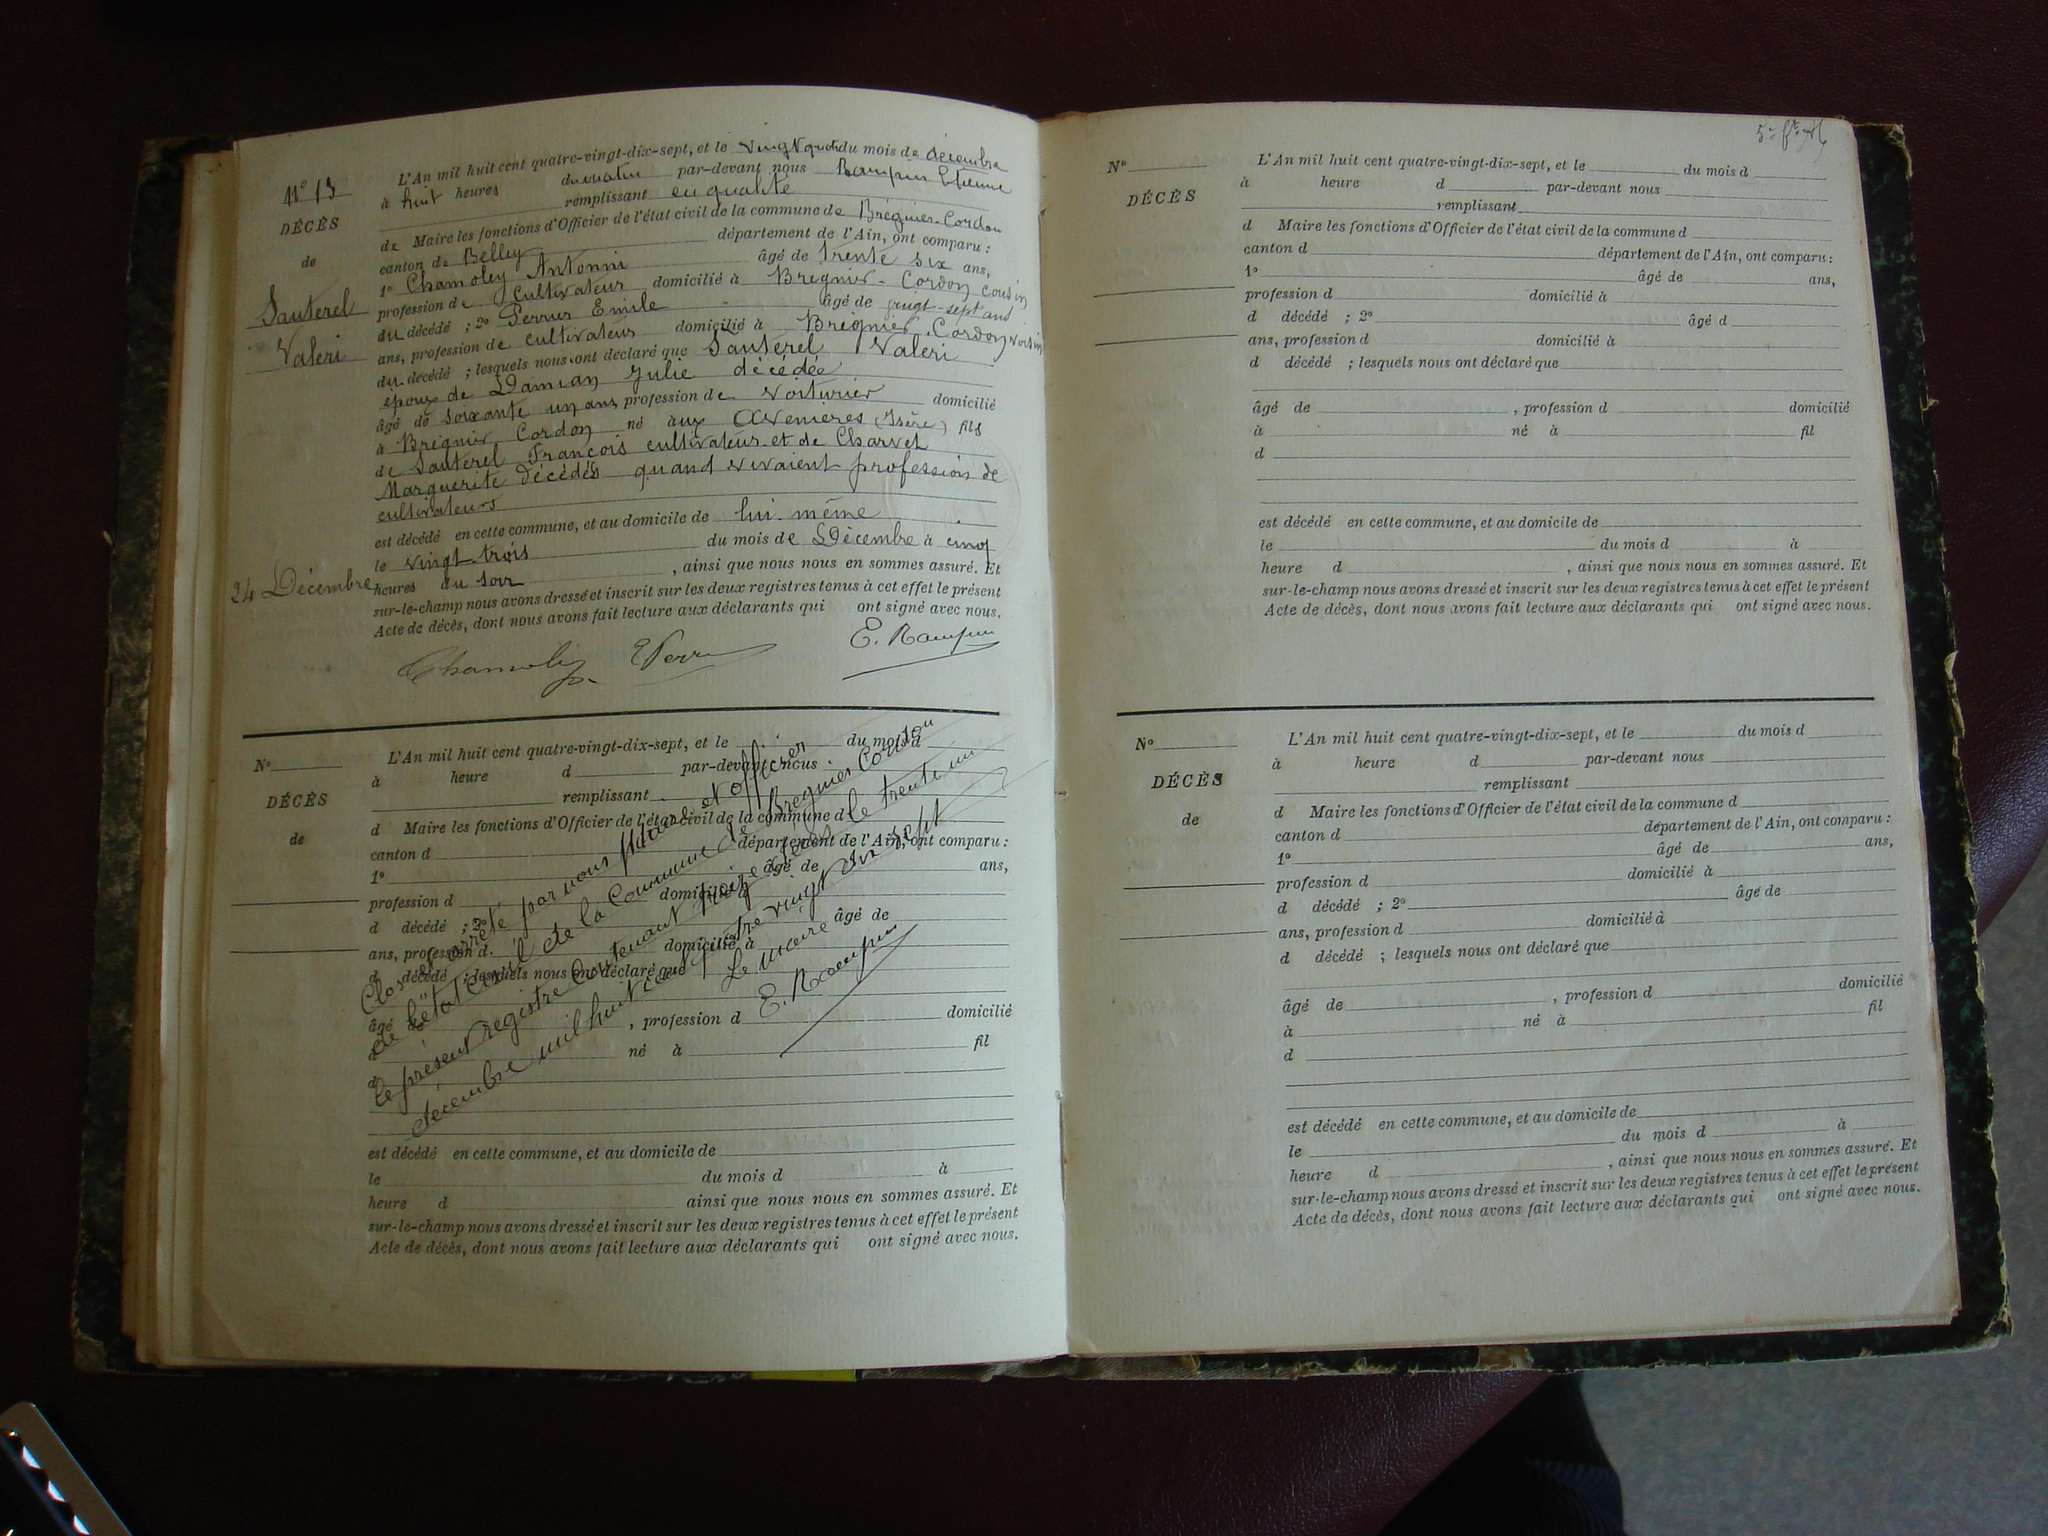 N° 13
DÉCÈS
de
Sauterel
Valeri
24 Décembre
L'An mil huit cent quatre-vingt-dix-sept, et le vingt quatre du mois de décembre
à huit heures du matin par-devant nous Rampin Etienne
remplissant en qualité
de Maire les fonctions d'Officier de l'état civil de la commune de Brégnier-Cordon
canton de Belley département de l'Ain, ont comparu :
1° Chamoley Antonin âgé de trente six ans,
profession de cultivateur domicilié à Brégnier-Cordon cousin
du décédé ; 2° Perrier Emile âgé de vingt-sept ans
ans, profession de cultivateur domicilié à Brégnier-Cordon voisin
du décédé ; lesquels nous ont déclaré que Sauterel Valeri
époux de Damian Julie décédée
âgé de soixante un ans profession de Voiturier domicilié
à Brégnier Cordon né aux Avenières (Isère) fils
de Sauterel François cultivateur et de Charvet
Marguerite décédés quand vivaient profession de
cultivateurs
est décédé en cette commune, et au domicile de lui même
le vingt trois du mois de Décembre à cinq
heures du soir , ainsi que nous nous en sommes assuré. Et
sur-le-champ nous avons dressé et inscrit sur les deux registres tenus à cet effet le présent
Acte de décès, dont nous avons fait lecture aux déclarants qui ont signé avec nous.
E. Rampin
N°
DÉCÈS
de
L'An mil huit cent quatre-vingt-dix-sept, et le du mois d
à heure d par-devant nous
remplissant
d Maire les fonctions d'Officier de l'état civil de la commune d
canton d département de l'Ain, ont comparu :
1° âgé de ans,
profession d domicilié à
d décédé ; 2° âgé de
ans, profession d domicilié à
d décédé ; lesquels nous ont déclaré que
âgé de , profession d domicilié
à né à fil
d
est décédé en cette commune, et au domicile de
le du mois d à
heure d ainsi que nous nous en sommes assuré. Et
sur-le-champ nous avons dressé et inscrit sur les deux registres tenus à cet effet le présent
Acte de décès, dont nous avons fait lecture aux déclarants qui ont signé avec nous.
Clos et arrêté par nous Maire et officier
de l'état civil de la Commune de Bregnier Cordon
le présent registre contenant treize actes le trente un
décembre mil huit cent quatre vingt dix sept
Le Maire
E. Rampin
N°
DÉCÈS
L'An mil huit cent quatre-vingt-dix-sept, et le du mois d
à heure d par-devant nous
remplissant
d Maire les fonctions d'Officier de l'état civil de la commune d
canton d département de l'Ain, ont comparu :
1° âgé de ans,
profession d domicilié à
d décédé ; 2° âgé d
ans, profession d domicilié à
d décédé ; lesquels nous ont déclaré que
âgé de , profession d domicilié
à né à fil
d
est décédé en cette commune, et au domicile de
le du mois d à
heure d , ainsi que nous nous en sommes assuré. Et
sur-le-champ nous avons dressé et inscrit sur les deux registres tenus à cet effet le présent
Acte de décès, dont nous avons fait lecture aux déclarants qui ont signé avec nous.
N°
DÉCÈS
de
L'An mil huit cent quatre-vingt-dix-sept, et le du mois d
à heure d par-devant nous
remplissant
d Maire les fonctions d'Officier de l'état civil de la commune d
canton d département de l'Ain, ont comparu :
1° âgé de ans,
profession d domicilié à
d décédé ; 2° âgé de
ans, profession d domicilié à
d décédé ; lesquels nous ont déclaré que
âgé de , profession d domicilié
à né à fil
d
est décédé en cette commune, et au domicile de
le du mois d à
heure d , ainsi que nous nous en sommes assuré. Et
sur-le-champ nous avons dressé et inscrit sur les deux registres tenus à cet effet le présent
Acte de décès, dont nous avons fait lecture aux déclarants qui ont signé avec nous.